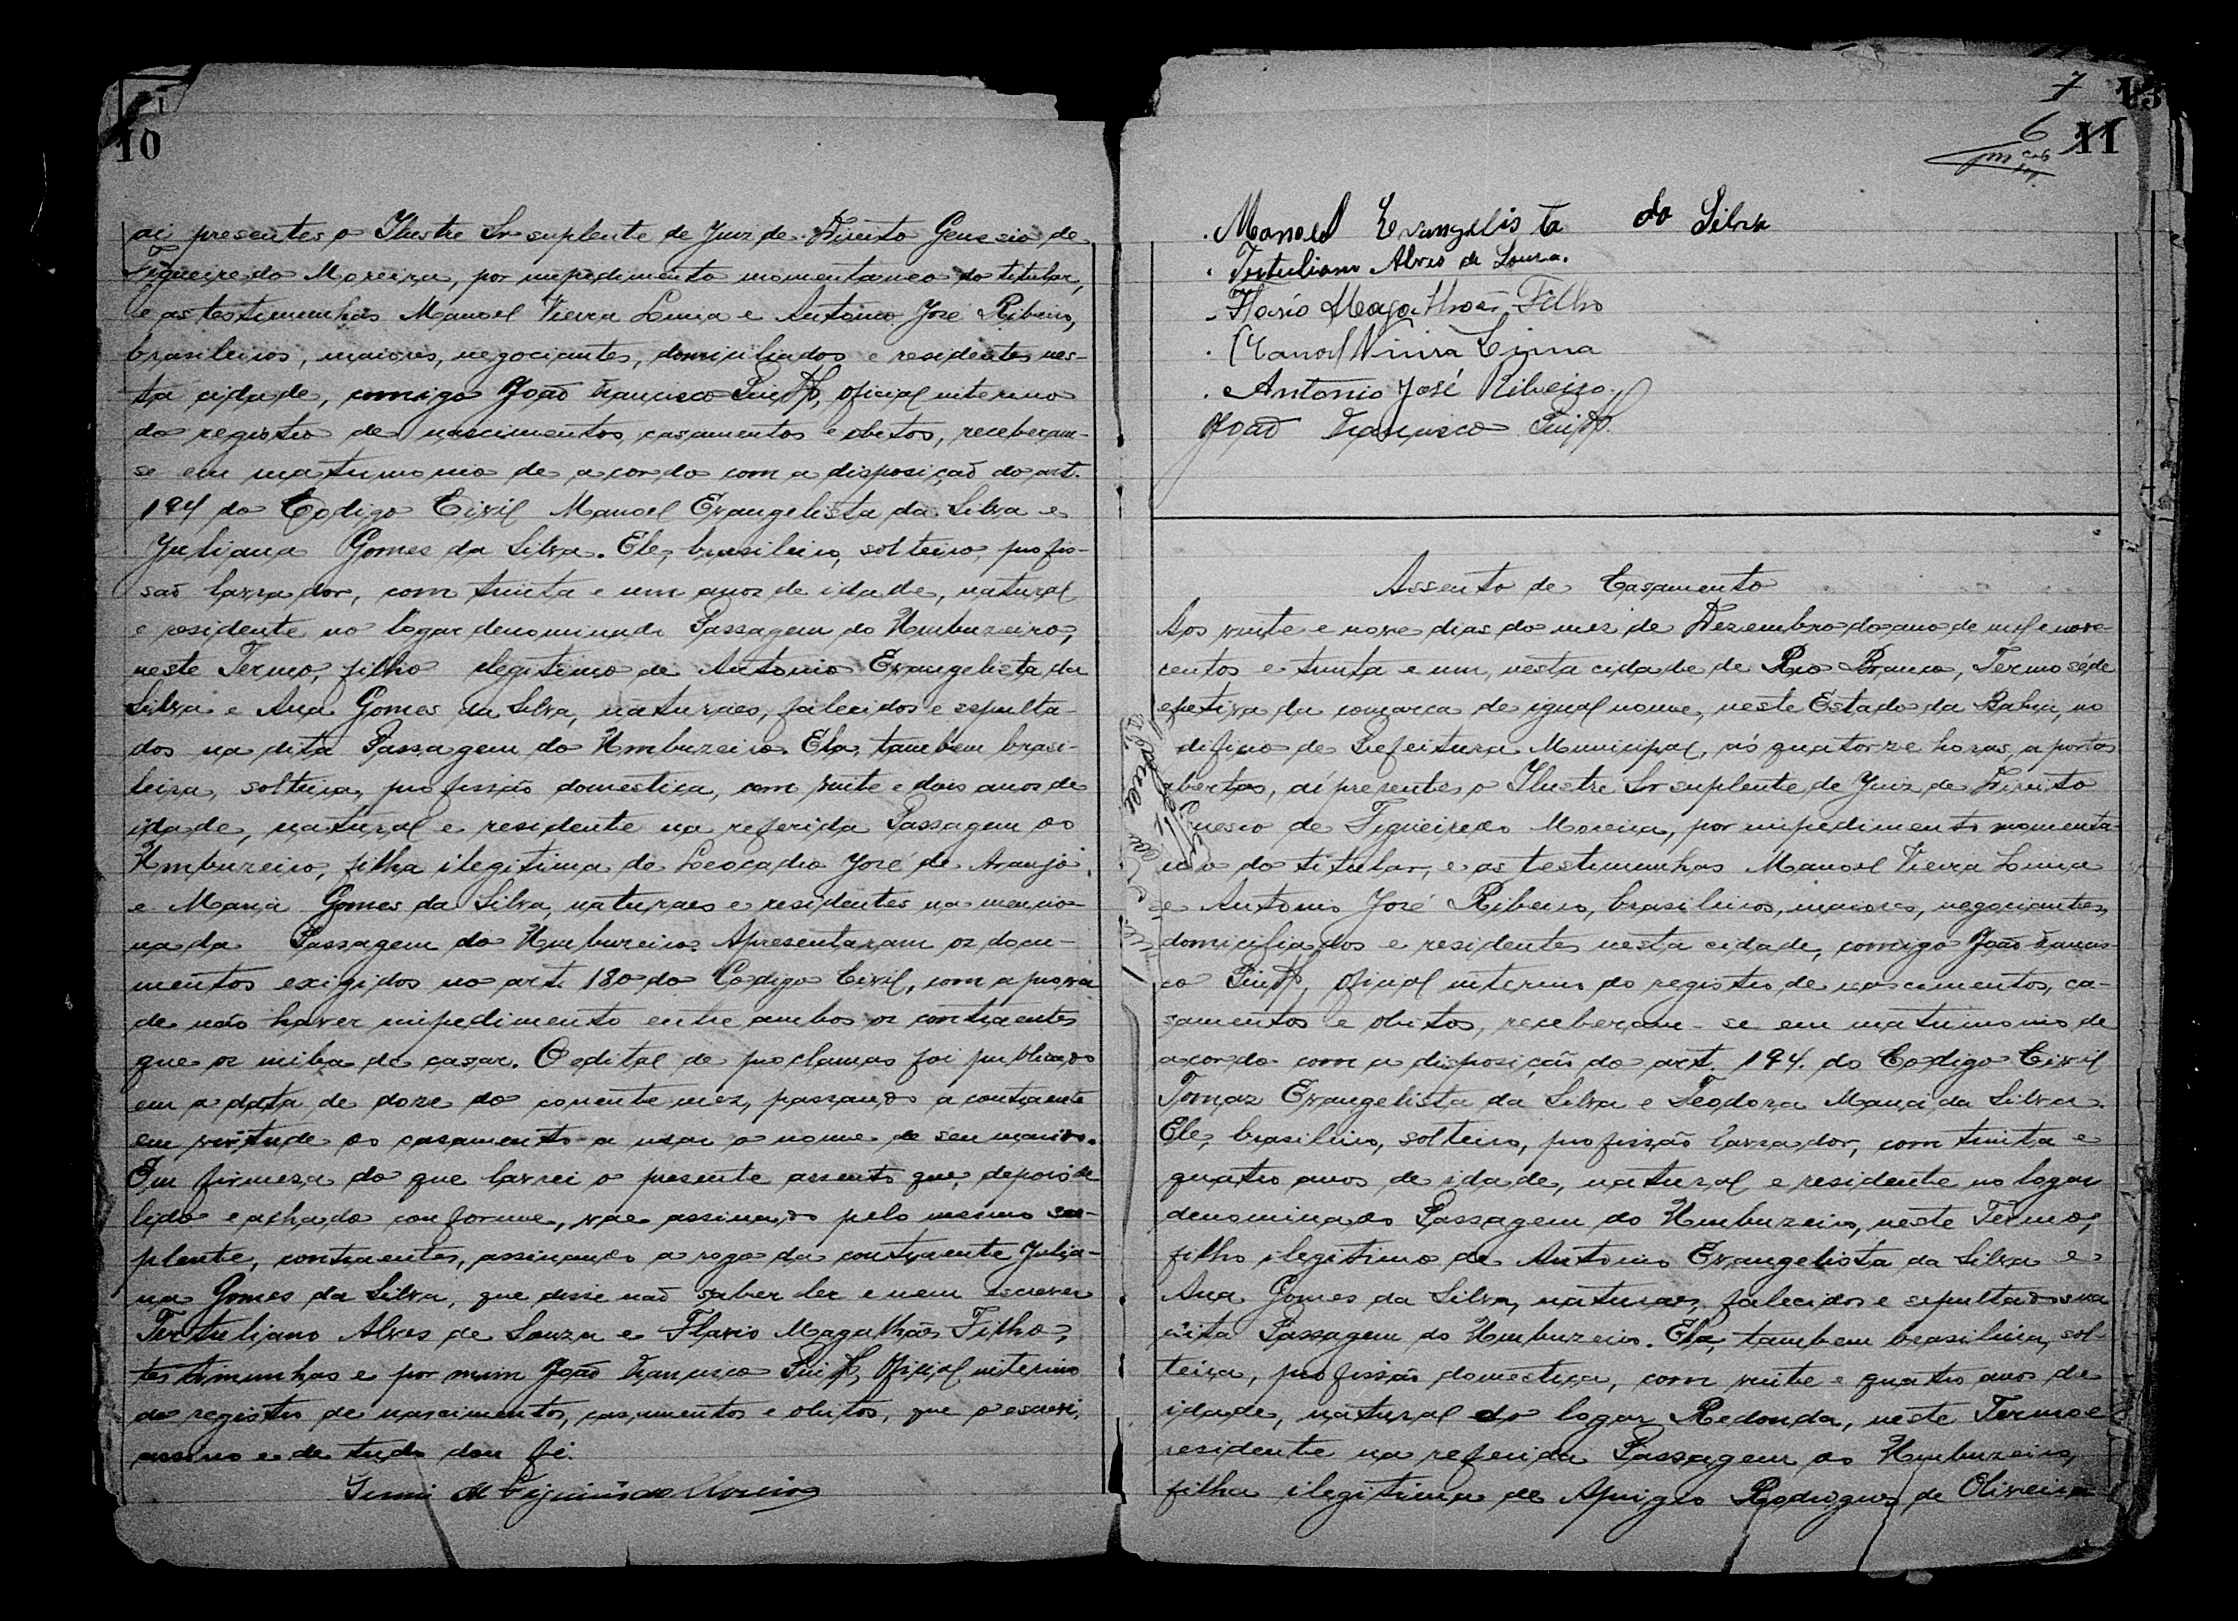 10
ai presentes o Ilustre Sr suplente de Juiz de Direito Genesio de
Figueiredo Moreira, por impedimento momentaneo do titular,
e as testimunhas Manoel Vieira Lima e Antonio José Ribeiro,
brasileiros, maiores, negociantes, domiciliados e residentes nes-
ta cidade, comigo João Francisco, oficial interino
do registro de nascimentos, casamentos e obitos, receberam-
se em matrimonio de acordo com a disposição do art.
194 do Codigo Civil Manoel Evangelista da Silva e
Juliana Gomes da Silva. Ele, brasileiro, solteiro, profis-
são lavrador, com trinta e um anos de idade, natural
e residente no logar denominado Passagem do Umbuzeiro,
neste Termo, filho ilegitimo de Antonio Evangelista da
Silva e Ana Gomes da Silva, naturaes, falecidos e sepulta-
dos na dita Passagem do Umbuzeiro. Ela, tambem brasi-
leira, solteira, profissão domestica, com vinte e dois anos de
idade, natural e residente na referida Passagem do
Umbuzeiro, filha ilegitima de Leocadio José de Araujo
e Maria Gomes da Silva, naturaes e residentes na mencio-
nada Passagem do Umbuzeiro. Apresentaram os docu-
mentos exigidos no art. 180 do Codigo Civil, com a prova
de não haver impedimento entre ambos os contraentes
que os iniba de casar. O edital de proclamas foi publicado
em a data de doze do corrente mez, passando a contraente
em virtude do casamento a usar o nome de seu marido.
Em firmesa do que lavrei o presente assento que, depois de
lido e achado conforme, vae assinado pelo mesmo su-
plente, contraentes, assinando a rogo da contraente Julia-
na Gomes da Silva, que disse não saber ler e nem escrever
Tertuliano Alves de Souza e Flavio Magalhães Filho,
testimunhas e por mim João Francisco, Oficial interino
do registro de nascimentos, casamentos e obitos, que o escrevi,
assino e de tudo dou fé.
de Figueiredo Moreira
7 13
6 11
Manoel Evangelista da Silva
Tertuliano Alves de Souza.
Flavio Magalhães Filho
Manoel Vieira Lima
Antonio José Ribeiro
João Francisco
Assento de Casamento
Aos vinte e nove dias do mez de Dezembro do ano de mil e nove-
centos e trinta e um, nesta cidade de Rio Branco, Termo séde
efetiva da comarca de igual nome, neste Estado da Bahia, no
edificio de Prefeitura Municipal, ás quatorze horas, a portas
abertas, aí presentes o Ilustre Sr suplente de Juiz de Direito
Genesio de Figueiredo Moreira, por impedimento momentâ-
neo do titular, e as testimunhas Manoel Vieira Lima
e Antonio José Ribeiro, brasileiros, maiores, negociantes,
domiciliados e residentes nesta cidade, comigo João Francis-
co, Oficial interino do registro de nascimentos, ca-
samentos e obitos, receberam-se em matrimonio de
acordo com a disposição do art. 194. do Codigo Civil
Tomaz Evangelista da Silva e Teodora Maria da Silva.
Ele, brasileiro, solteiro, profissão lavrador, com trinta e
quatro anos de idade, natural e residente no logar
denominado Passagem do Umbuzeiro, neste Termo,
filho ilegitimo de Antonio Evangelista da Silva e
Ana Gomes da Silva, naturaes, falecidos e sepultados na
dita Passagem do Umbuzeiro. Ela, tambem brasileira, sol-
teira, profissão domestica, com vinte e quatro anos de
idade, natural do logar Redonda, neste Termo e
residente na referida Passagem do Umbuzeiro,
filha ilegitima de Aprigio Rodrigues de Oliveira